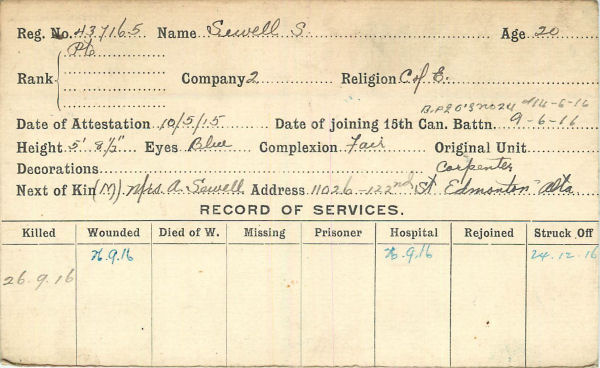 Reg. No. 437165 Name Sewell S. Age 20
Pte
Rank Company 2 Religion C of E.
B.P2 O's No 24 14-6-16
Date of Attestation 10/5/15 Date of joining 15th Can. Battn. 9-6-16
Height 5' 8½" Eyes Blue Complexion Fair Original Unit
Decorations Carpenter
Next of Kin (M) Mrs A. Sewell Address 11026-122nd St Edmonton Alta
RECORD OF SERVICES.
Killed Wounded Died of W. Missing Prisoner Hospital Rejoined Struck Off
26.9.16 26.9.16 24.12.16
26.9.16